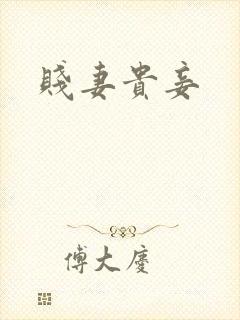 賤妻貴妾
傅大慶